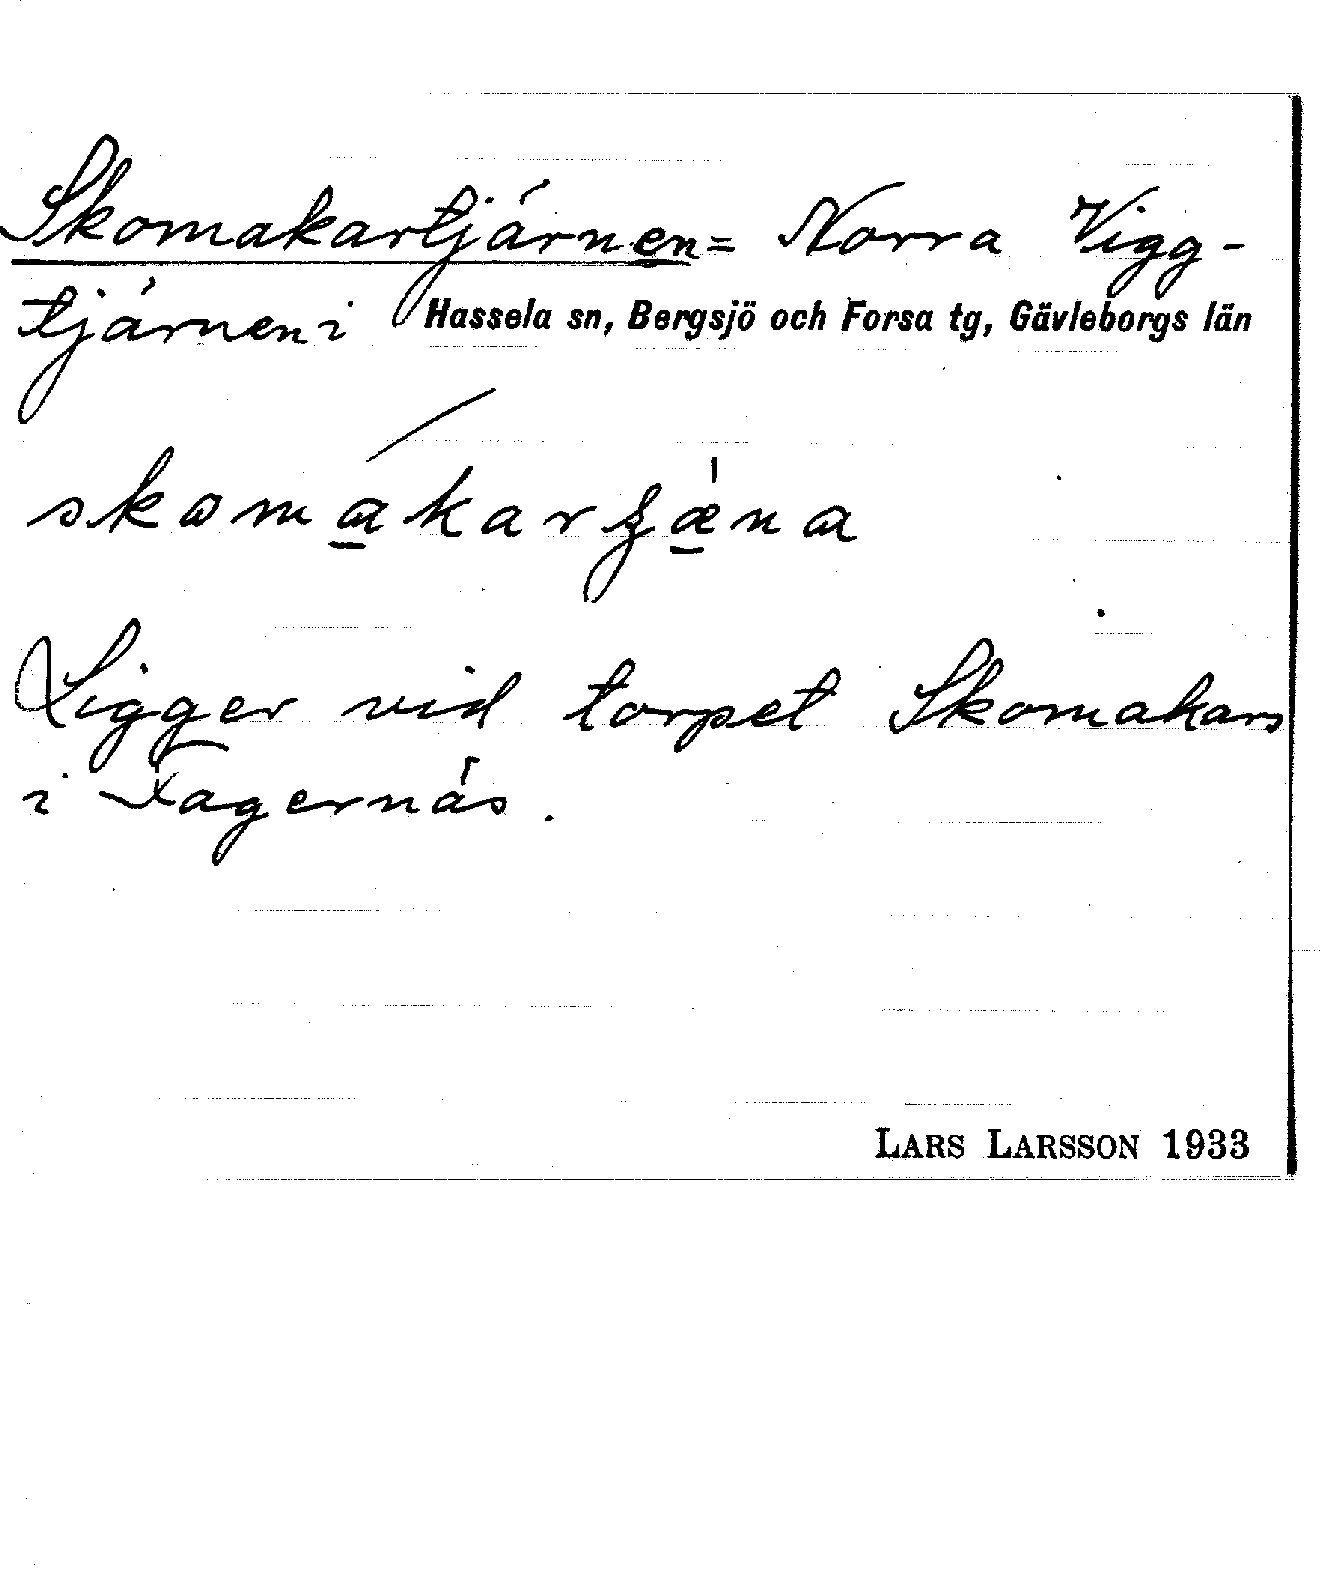 Skomakartjärnen = Norra Vigg-
tjärnen i Hassela sn, Bergsjö och Forsa tg, Gävleborgs län
Ligger vid torpet Skomakars
i Fagernäs.
LARS LARSSON 1933